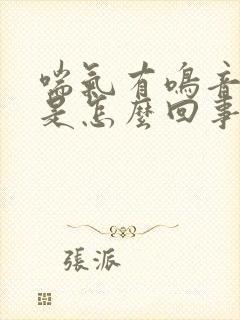 喘氣有鳴音
是怎麼回事
張派